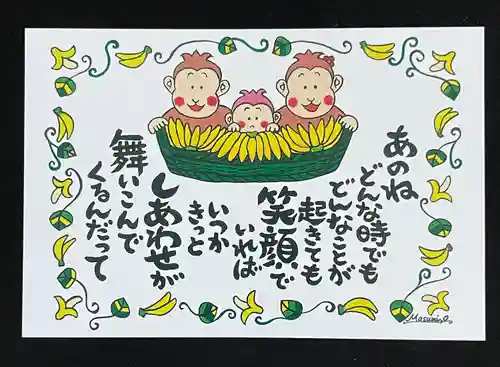 あのね
どんな時でも
どんなことが
起きても
笑顔で
いれば
いつか
きっと
しあわせが
舞いこんで
くるんだって
Masumi.O.